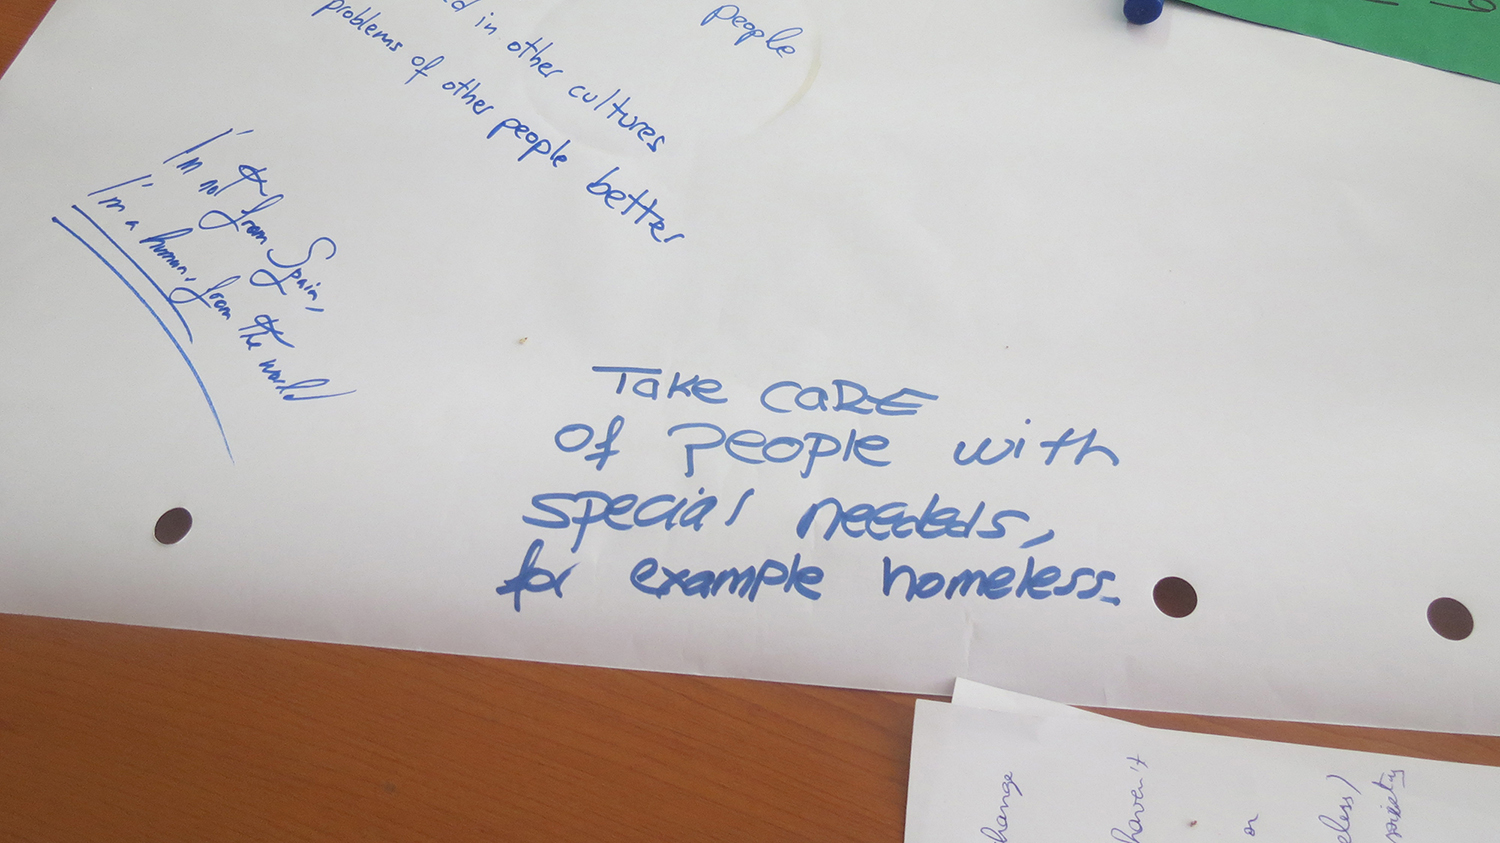 people
in other cultures
problems of other people better
I'm not from Spain,
I'm a human, from the world
Take CARE
of people with
special neededs,
for example homeless.
haven't
or